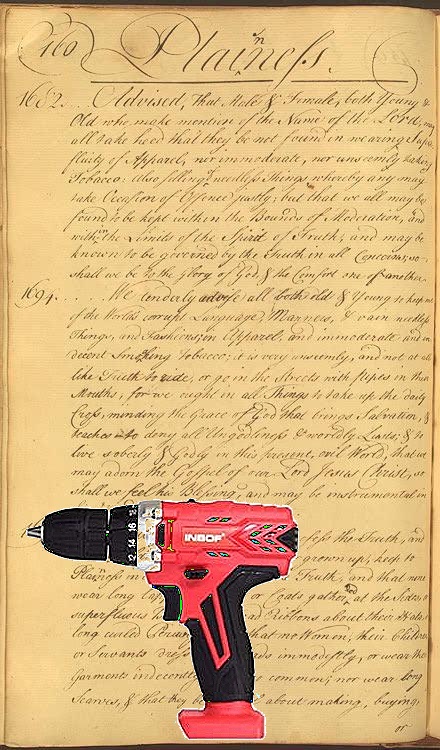 160
Plainness.
1682... Advised, That Male & Female, both Young &
Old who make mention of the Name of the Lord, may
all take heed that they be not found in wearing Supe-
fluity of Apparel, nor immoderate, nor unseemly taking
Tobacco: Also selling needless Things whereby any may
take Occasion of Offence justly; but that we all may be
found to be kept within the Bounds of Moderation, and
within the Limits of the Spirit of Truth; and may be
known to be governed by the Truth in all Concerns, so
shall we be to the Glory of God, & the Comfort one of another.
1694..... We tenderly advise all both old & Young to keep out
of the World's corrupt Language, Manners, & vain needless
Things, and Fashions, in Apparel, and immoderate and in-
decent Smoking Tobacco; it is very unseemly, and not at all
like Truth to ride, or go in the Streets with pipes in their
Mouths, for we ought in all Things to take up the daily
Cross, minding the Grace of God that brings Salvation, &
teaches to deny all Ungodliness & worldly Lusts, & to
live soberly & Godly in this present, evil World, that we
may adorn the Gospel of our Lord Jesus Christ, so
shall we feel his Blessing, and may be instrumental in
fess the Truth, and
grown up, keep to
Plainness in Truth, and that none
wear long or Coats gather'd at the Sides, or
superfluous Ribbons about their Hats, or
long curled Periwigs that no Women, their Children
or Servants dress modestly, or wear their
Garments indecently common; nor wear long
Scarves, & that they be about making, buying,
or
INGOF
12 14 16 18